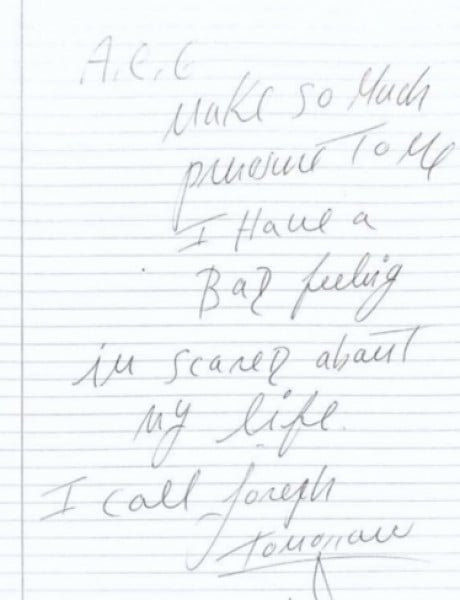 A.E.G
Make so Much
pressure To Me
I Have a
Bad feeling
im scared about
my life.
I call Joseph
Tomorrow